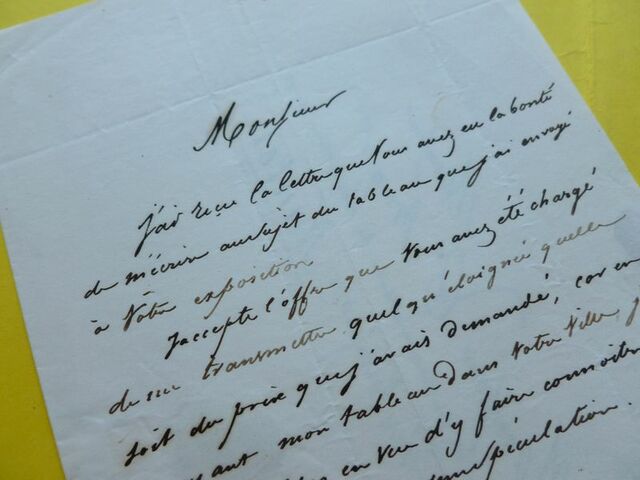 Monsieur
j'ai reçu la lettre que vous avez eu la bonté
de m'écrire au sujet du tableau que j'ai envoyé
à Votre exposition
J'accepte l'offre que Vous avez été chargé
de me transmettre quelqu'éloignée quelle
soit du prix que j'avais demandé, car en
mon tableau dans Votre Ville, j
en vue d'y faire connoitre
spéculation.